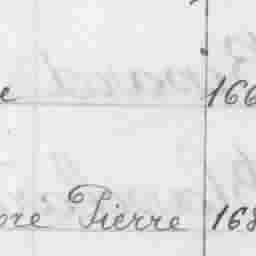 e 166
oré Pierre 168